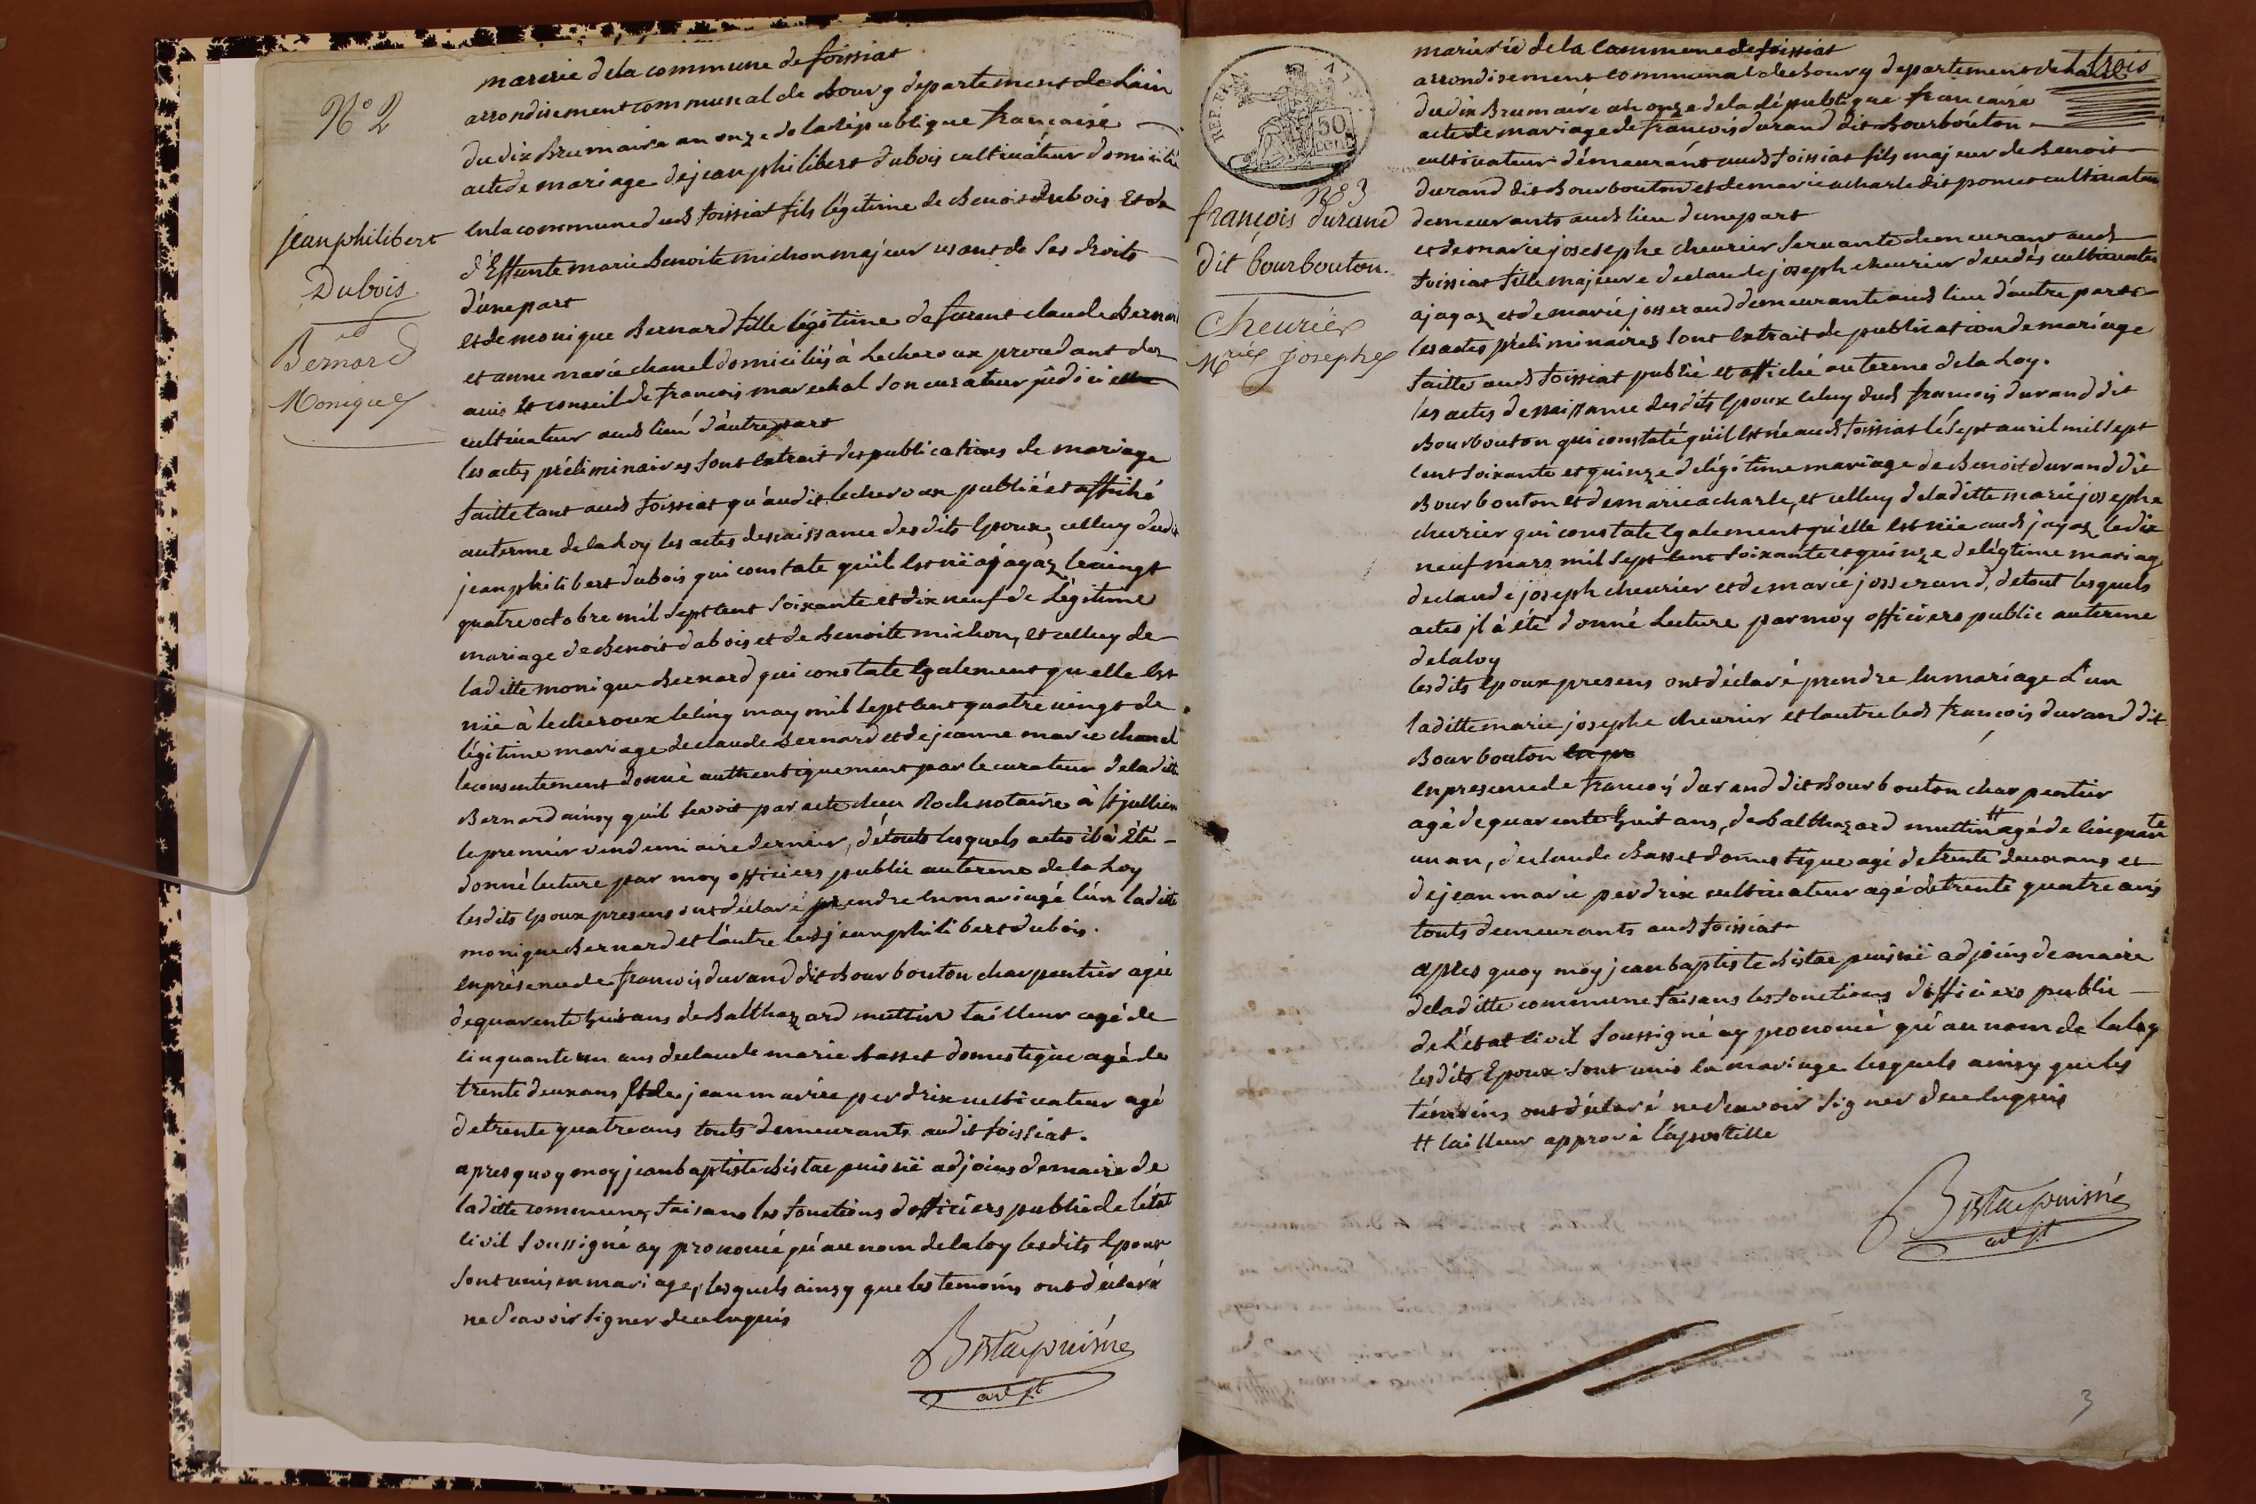 N° 2
jean philibert
Dubois
et
Bernard
Monique
mairie de la commune de foissiat
arrondisement communal de Bourg departement de Lain
du dix Brumaire an onze de la république francaise
acte de mariage de jean philibert dubois cultivateur domicilié
en la commune dud foissiat fils légitime de Benoit dubois et de
d'Effunte marie Benoite michon majeur usant de ses droits
d'une part
et de monique Bernard fille légitime de furent claude Bernard
et anne marie chanel domiciliés à Lecheroux procedant des
avis et conseil de francois marechal son curateur
cultivateur aud lieu d'autre part
les actes préliminaires sont extrait des publications de mariage
faitte tant aud foissiat qu'audit lecheroux publié et affiché
au terme de la Loy les actes de naissance desdits Epoux, celluy dudit
jean philibert dubois qui constate qu'il est né a jayaz le vingt
quatre octobre mil sept cent soixante et dix neuf de Légitime
mariage de Benoit dubois et de Benoite michon, et celluy de
laditte monique Bernard qui constate Egalement qu'elle est
née à lecheroux le cinq may mil sept cent quatre vingt de
légitime mariage de claude Bernard et de jeanne marie chanel
le consentement donné authentiquement par le curateur de laditte
Bernard ainsy qu'il se voit par acte Roche notaire à St jullien
le premier vendemiaire dernier, de touts lesquels actes il à été
donné lecture par moy officiers public au terme de la Loy
lesdits Epoux presens ont déclaré prendre en mariage l'un laditte
monique Bernard et l'autre led jean philibert dubois.
en présence de francois durand dit Bourbouton charpentier agée
de quarente huit ans de Balthazard muttin tailleur agé de
cinquante un ans de claude marie Basset domestique agé de
trente deux ans et de jean marie perdrix cultivateur agé
de trente quatre ans touts demeurants audit foissiat.
apres quoy moy jean baptiste Bistac puisné adjoins de maire de
laditte commune, faisans les fonctions d'officiers public de l'état
civil soussigné ay prononcé qu'au nom de la loy lesdits Epoux
sont unis en mariage, lesquels ainsy que les temoins ont déclaré
ne scavoir signer de ce enquis
Bistac puisné
adjt
REP. FRA.
50
CENT.
N° 3
françois durand
dit bourbouton.
Cheurier
Mrie Josephe
trois
mairie de la Commune de foissiat
arrondisement communal de Bourg departement de Lain
du dix Brumaire an onze de la république francaise
acte de mariage de francois durand dit Bourbouton
cultivateur démeurant aud foissiat fils majeur de Benoit
durand dit Bourbouton et de marie acharle dit ponut cultivateur
demeurants aud lieu d'une part
et de marie josesephe cheurier servante demeurant aud
foissiat fille majeure de claude joseph cheurier cultivateur
a jayaz et de marie josserand demeurante aud lieu d'autre part
les actes préliminaires sont extrait de publication de mariage
faitte aud foissiat publié et affiché au terme de la Loy.
les actes de naissance desdits Epoux celuy dud francois durand dit
Bourbouton qui constaté qu'il est né aud foissiat le sept avril mil sept
cent soixante et quinze de légitime mariage de Benoit durand dit
Bourbouton et de marie acharle, et celluy de laditte marie josephe
cheurier qui constate Egalement qu'elle est née aud jayaz le dix
neuf mars mil sept cent soixante et quinze de légtime mariag
de claude joseph cheurier et de marie josserand, de tout lesquels
actes il à été donné Lecture par moy officiers public au terme
de la loy
lesdits Epoux presens ont déclaré prendre en mariage L'un
laditte marie josephe cheurier et lautre led francois durand dit
Bourbouton
en presence de francois durand dit Bourbouton charpentier
agé de quarente huit ans, de Balthazard muttin # agé de cinquante
un an, de claude Basset domestique agé de trente deux ans et
de jean marie perdrix cultivateur agé de trente quatre ans
touts demeurants aud foissiat
apres quoy moy jean baptiste Bistac puisné adjoins de maire
de laditte commune faisans les fonctions d'officiers public
de L'état civil soussigné ay prononcé qu'au nom de la loy
lesdits Epoux sont unis en mariage lesquels ainsy que les
témoins ont déclaré ne scavoir signer de ce enquis
# tailleur apprové l'apostille
Bistac puisné
adjt
3